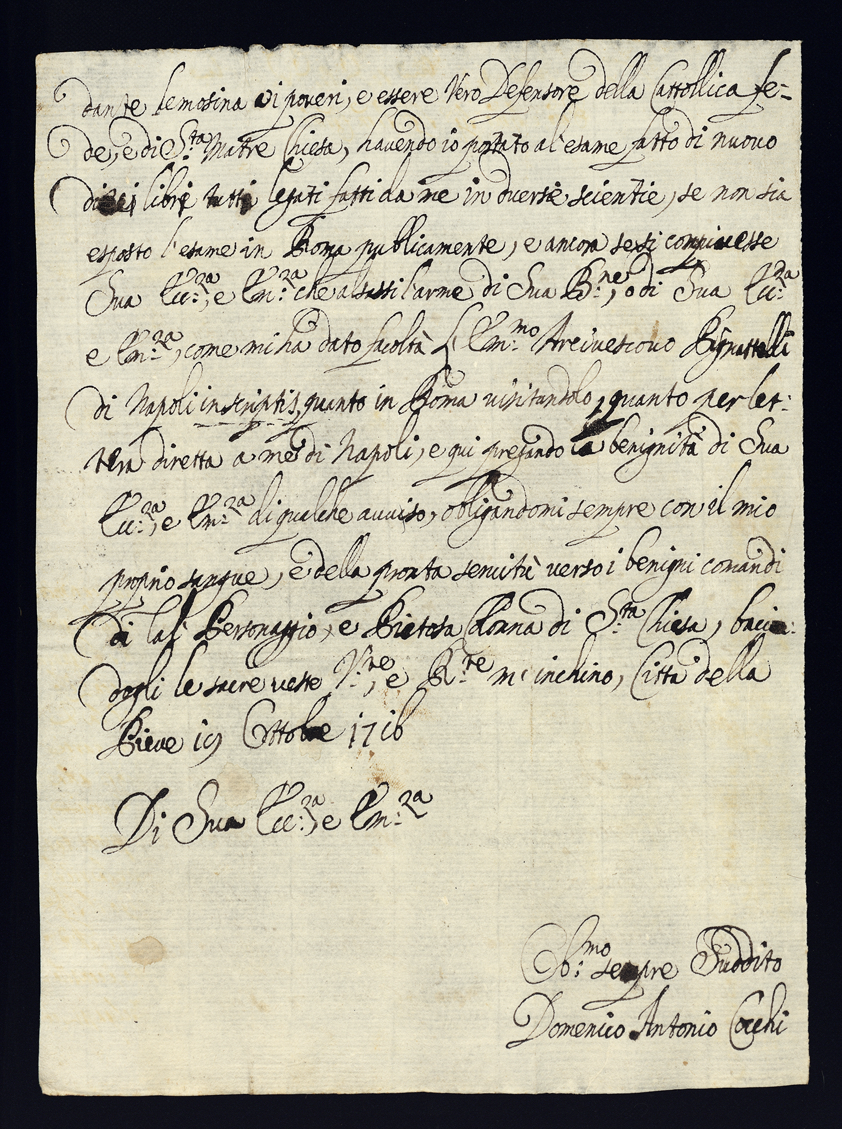 dante lemosina a i poveri, e essere Vero Defensore della Cattollica fe=
de, e di S.ta Matre Chiesa, havendo io portato al'esame fatto di nuovo
dieci libri tutti legati fatti da me in diverse scientie, se non sia
esposto l'esame in Roma publicamente, e ancora se si compiacesse
Sua Ecc:za, e Em:za che alzassi l'arme di Sua B:ne, o di Sua Ecc:za
e Em:za, come mi ha dato facoltà l'Em:mo Arcivescovo Pignattelli
di Napoli inscriptis, quanto in Roma visitandolo, quanto per let:
tera diretta a me di Napoli, e qui pregando la benignità di Sua
Ecc:za, e Em:za di qualche avviso, obligandomi sempre con il mio
proprio sangue, e della pronta servitù verso i benigni comandi
di tal Personaggio, e Pietosa Colonna di S:ta Chiesa, bacian:
dogli le sacre veste V:ne, e R:te m'inchino, Città della
Pieve 19 Ottobre 1716
Di Sua Ecc:za, e Em:za
Ob:mo sempre Suddito
Domenico Antonio Cocchi